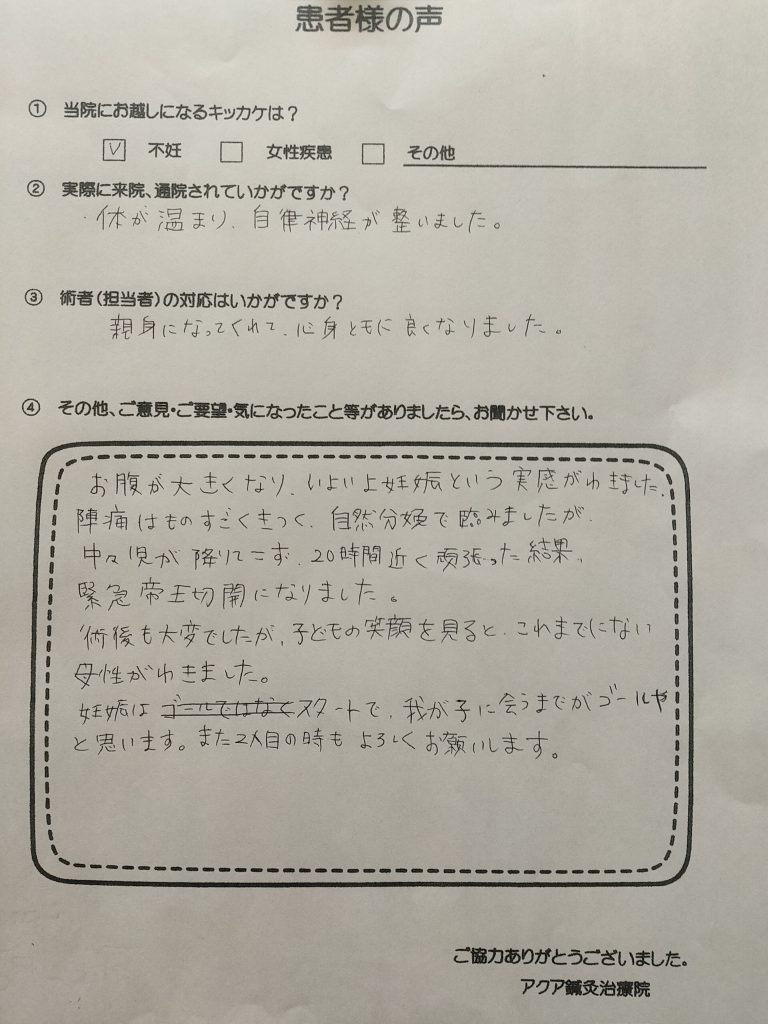 患者様の声
① 当院にお越しになるキッカケは？
☑ 不妊 □ 女性疾患 □ その他
② 実際に来院、通院されていかがですか？
・体が温まり、自律神経が整いました。
③ 術者(担当者)の対応はいかがですか？
親身になってくれて、心身ともに良くなりました。
④ その他、ご意見・ご要望・気になったこと等がありましたら、お聞かせ下さい。
お腹が大きくなり、いよいよ妊娠という実感がわきました。
陣痛はものすごくきつく、自然分娩で臨みましたが、
中々児が降りてこず、20時間近く頑張った結果、
緊急帝王切開になりました。
術後も大変でしたが、子どもの笑顔を見ると、これまでにない
母性がわきました。
妊娠はゴールではなくスタートで、我が子に会うまでがゴールや
と思います。また2人目の時もよろしくお願いします。
ご協力ありがとうございました。
アクア鍼灸治療院